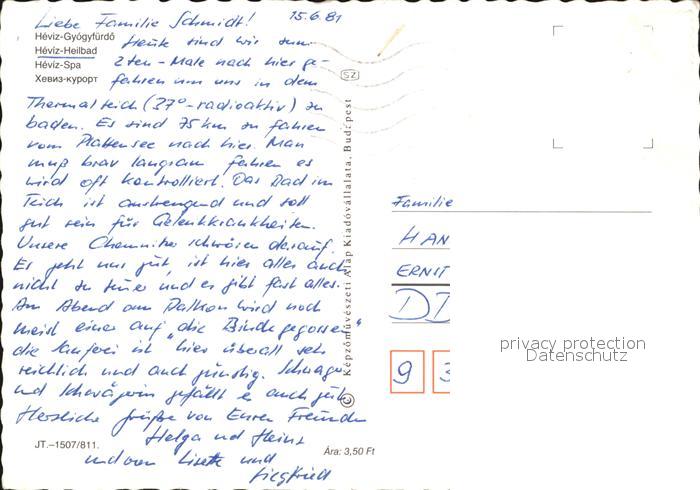 Liebe Familie Schmidt! 15.6.81
Hévíz-Gyógyfürdő
Hévíz-Heilbad
Hévíz-Spa
Хевиз-курорт
Heute sind wir zum
2ten-Male nach hier ge-
fahren um uns in dem
Thermalteich (37°-radioaktiv) zu
baden. Es sind 75 km zu fahren
vom Plattensee nach hier. Man
muß brav langsam fahren es
wird oft kontrolliert. Das Bad im
Teich ist anstrengend und soll
gut sein für Gelenkkrankheiten.
Unsere Chemnitzer schwören darauf.
Es geht uns gut, ist hier alles auch
nicht so teuer und es gibt fast alles.
Am Abend am Balkon wird noch
meist einer auf „die Binde gegossen"
die Sauferei ist hier überall sehr
reichlich und auch günstig. Schwager
und Schwägerin gefällt es auch gut.
Herzliche Grüße von Euren Freunden
Helga und Heinz
und von Lisette und
Siegfried
JT.–1507/811.
Ára: 3,50 Ft
SZ
© Képzőművészeti Alap Kiadóvállalata, Budapest
Familie
HAN
ERNST
DD
9 3
privacy protection
Datenschutz